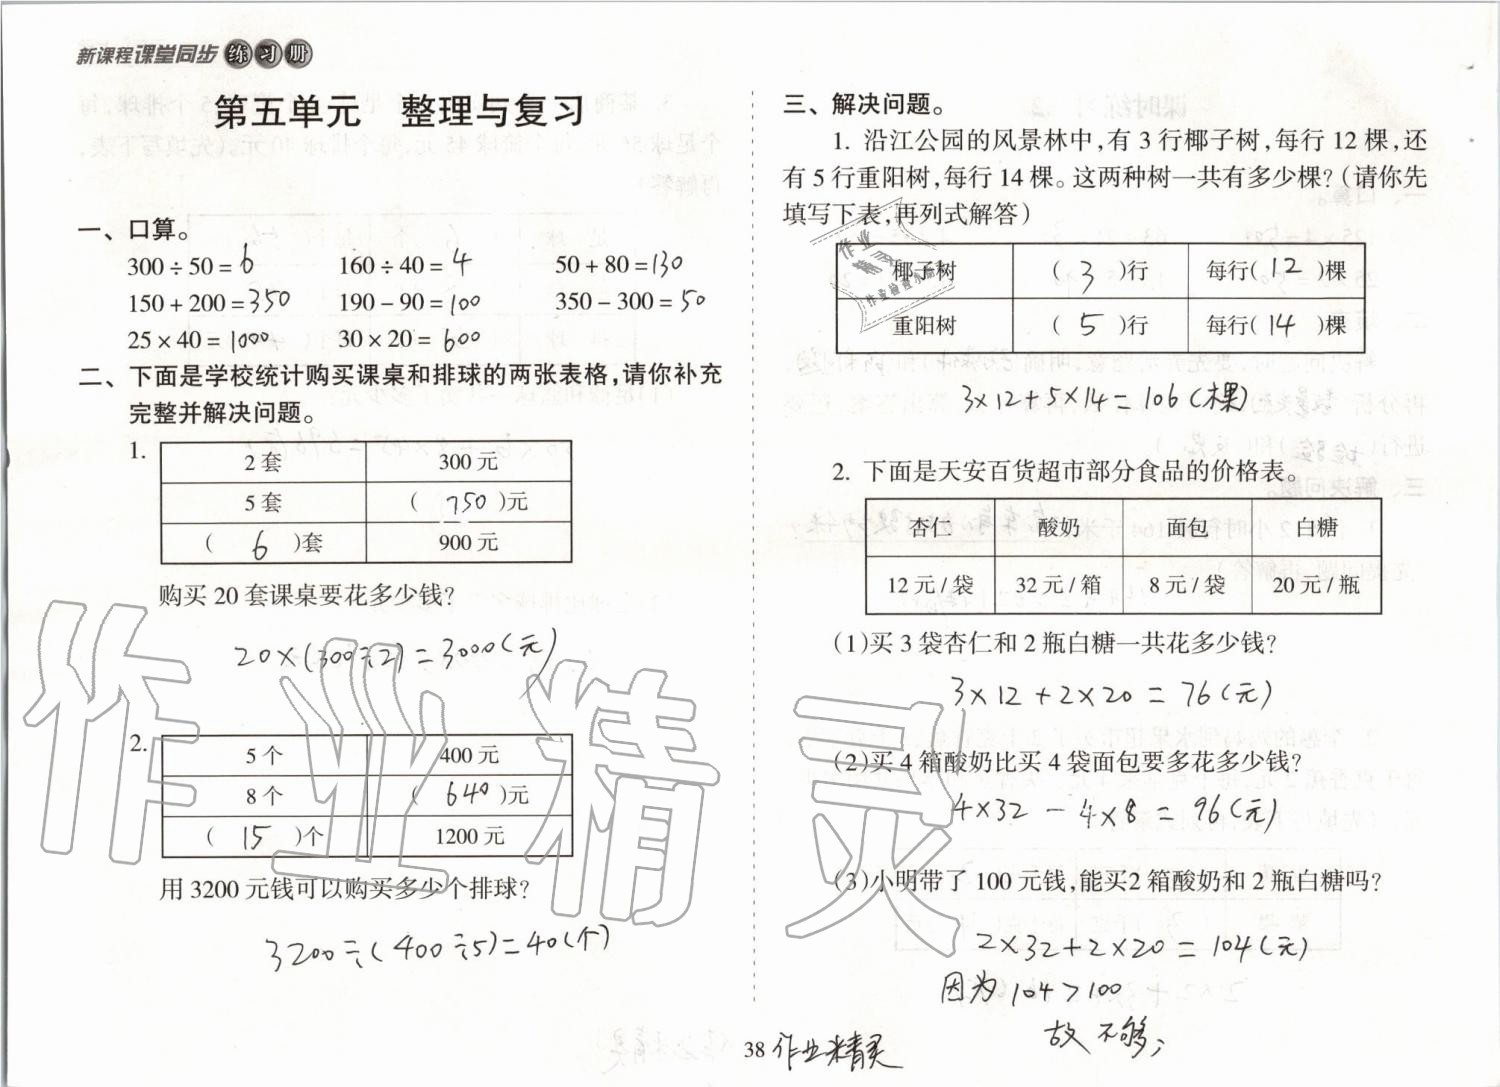 新课程课堂同步练习册
第五单元 整理与复习
一、口算。
300÷50=6 160÷40=4 50+80=130
150+200=350 190-90=100 350-300=50
25×40=1000 30×20=600
二、下面是学校统计购买课桌和排球的两张表格,请你补充
完整并解决问题。
1.
2套 300元
5套 (750)元
(6)套 900元
购买20套课桌要花多少钱?
20×(300÷2)=3000(元)
2.
5个 400元
8个 (640)元
(15)个 1200元
用3200元钱可以购买多少个排球?
3200÷(400÷5)=40(个)
三、解决问题。
1. 沿江公园的风景林中,有3行椰子树,每行12棵,还
有5行重阳树,每行14棵。这两种树一共有多少棵?(请你先
填写下表,再列式解答)
椰子树 (3)行 每行(12)棵
重阳树 (5)行 每行(14)棵
3×12+5×14=106(棵)
2. 下面是天安百货超市部分食品的价格表。
杏仁 酸奶 面包 白糖
12元/袋 32元/箱 8元/袋 20元/瓶
(1)买3袋杏仁和2瓶白糖一共花多少钱?
3×12+2×20=76(元)
(2)买4箱酸奶比买4袋面包要多花多少钱?
4×32-4×8=96(元)
(3)小明带了100元钱,能买2箱酸奶和2瓶白糖吗?
2×32+2×20=104(元)
因为104>100
故不够;
38 作业精灵
作业精灵
作业
精灵